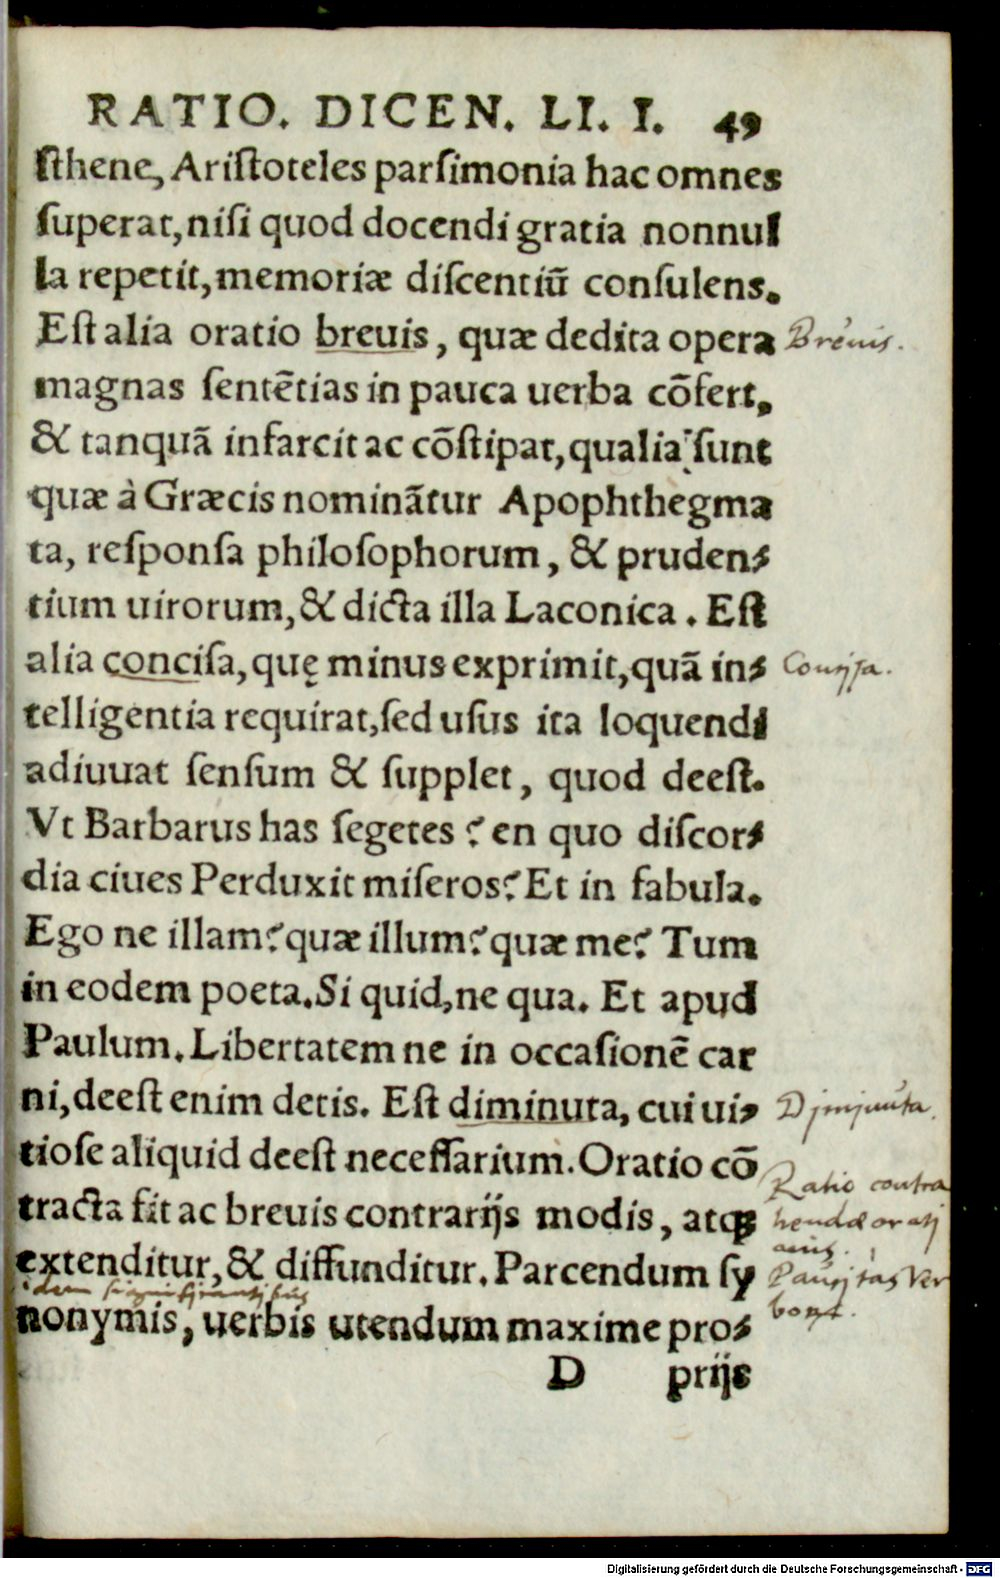 RATIO. DICEN. LI. I. 49
ſthene, Ariſtoteles parſimonia hac omnes
ſuperat, niſi quod docendi gratia nonnul
la repetit, memoriæ diſcentiū conſulens.
Eſt alia oratio breuis, quæ dedita opera
Breuis.
magnas ſentētias in pauca uerba cōfert,
& tanquā infarcit ac cōſtipat, qualia ſunt
quæ à Græcis nominātur Apophthegma
ta, reſponſa philoſophorum, & pruden⸗
tium uirorum, & dicta illa Laconica. Eſt
alia conciſa, quę minus exprimit, quā in⸗
Conciſa.
telligentia requirat, ſed uſus ita loquendi
adiuuat ſenſum & ſupplet, quod deeſt.
Vt Barbarus has ſegetes? en quo diſcor⸗
dia ciues Perduxit miſeros? Et in fabula.
Ego ne illam? quæ illum? quæ me? Tum
in eodem poeta. Si quid, ne qua. Et apud
Paulum. Libertatem ne in occaſionē car
ni, deeſt enim detis. Eſt diminuta, cui ui⸗
Diminuta.
tioſe aliquid deeſt neceſſarium. Oratio cō
tracta fit ac breuis contrarijs modis, atqꝫ
Ratio contra
hendæ orati
onis.
extenditur, & diffunditur. Parcendum ſy
Paucitas ver
borū.
idem significantibus
nonymis, uerbis utendum maxime pro⸗
D prijs
Digitalisierung gefördert durch die Deutsche Forschungsgemeinschaft - DFG